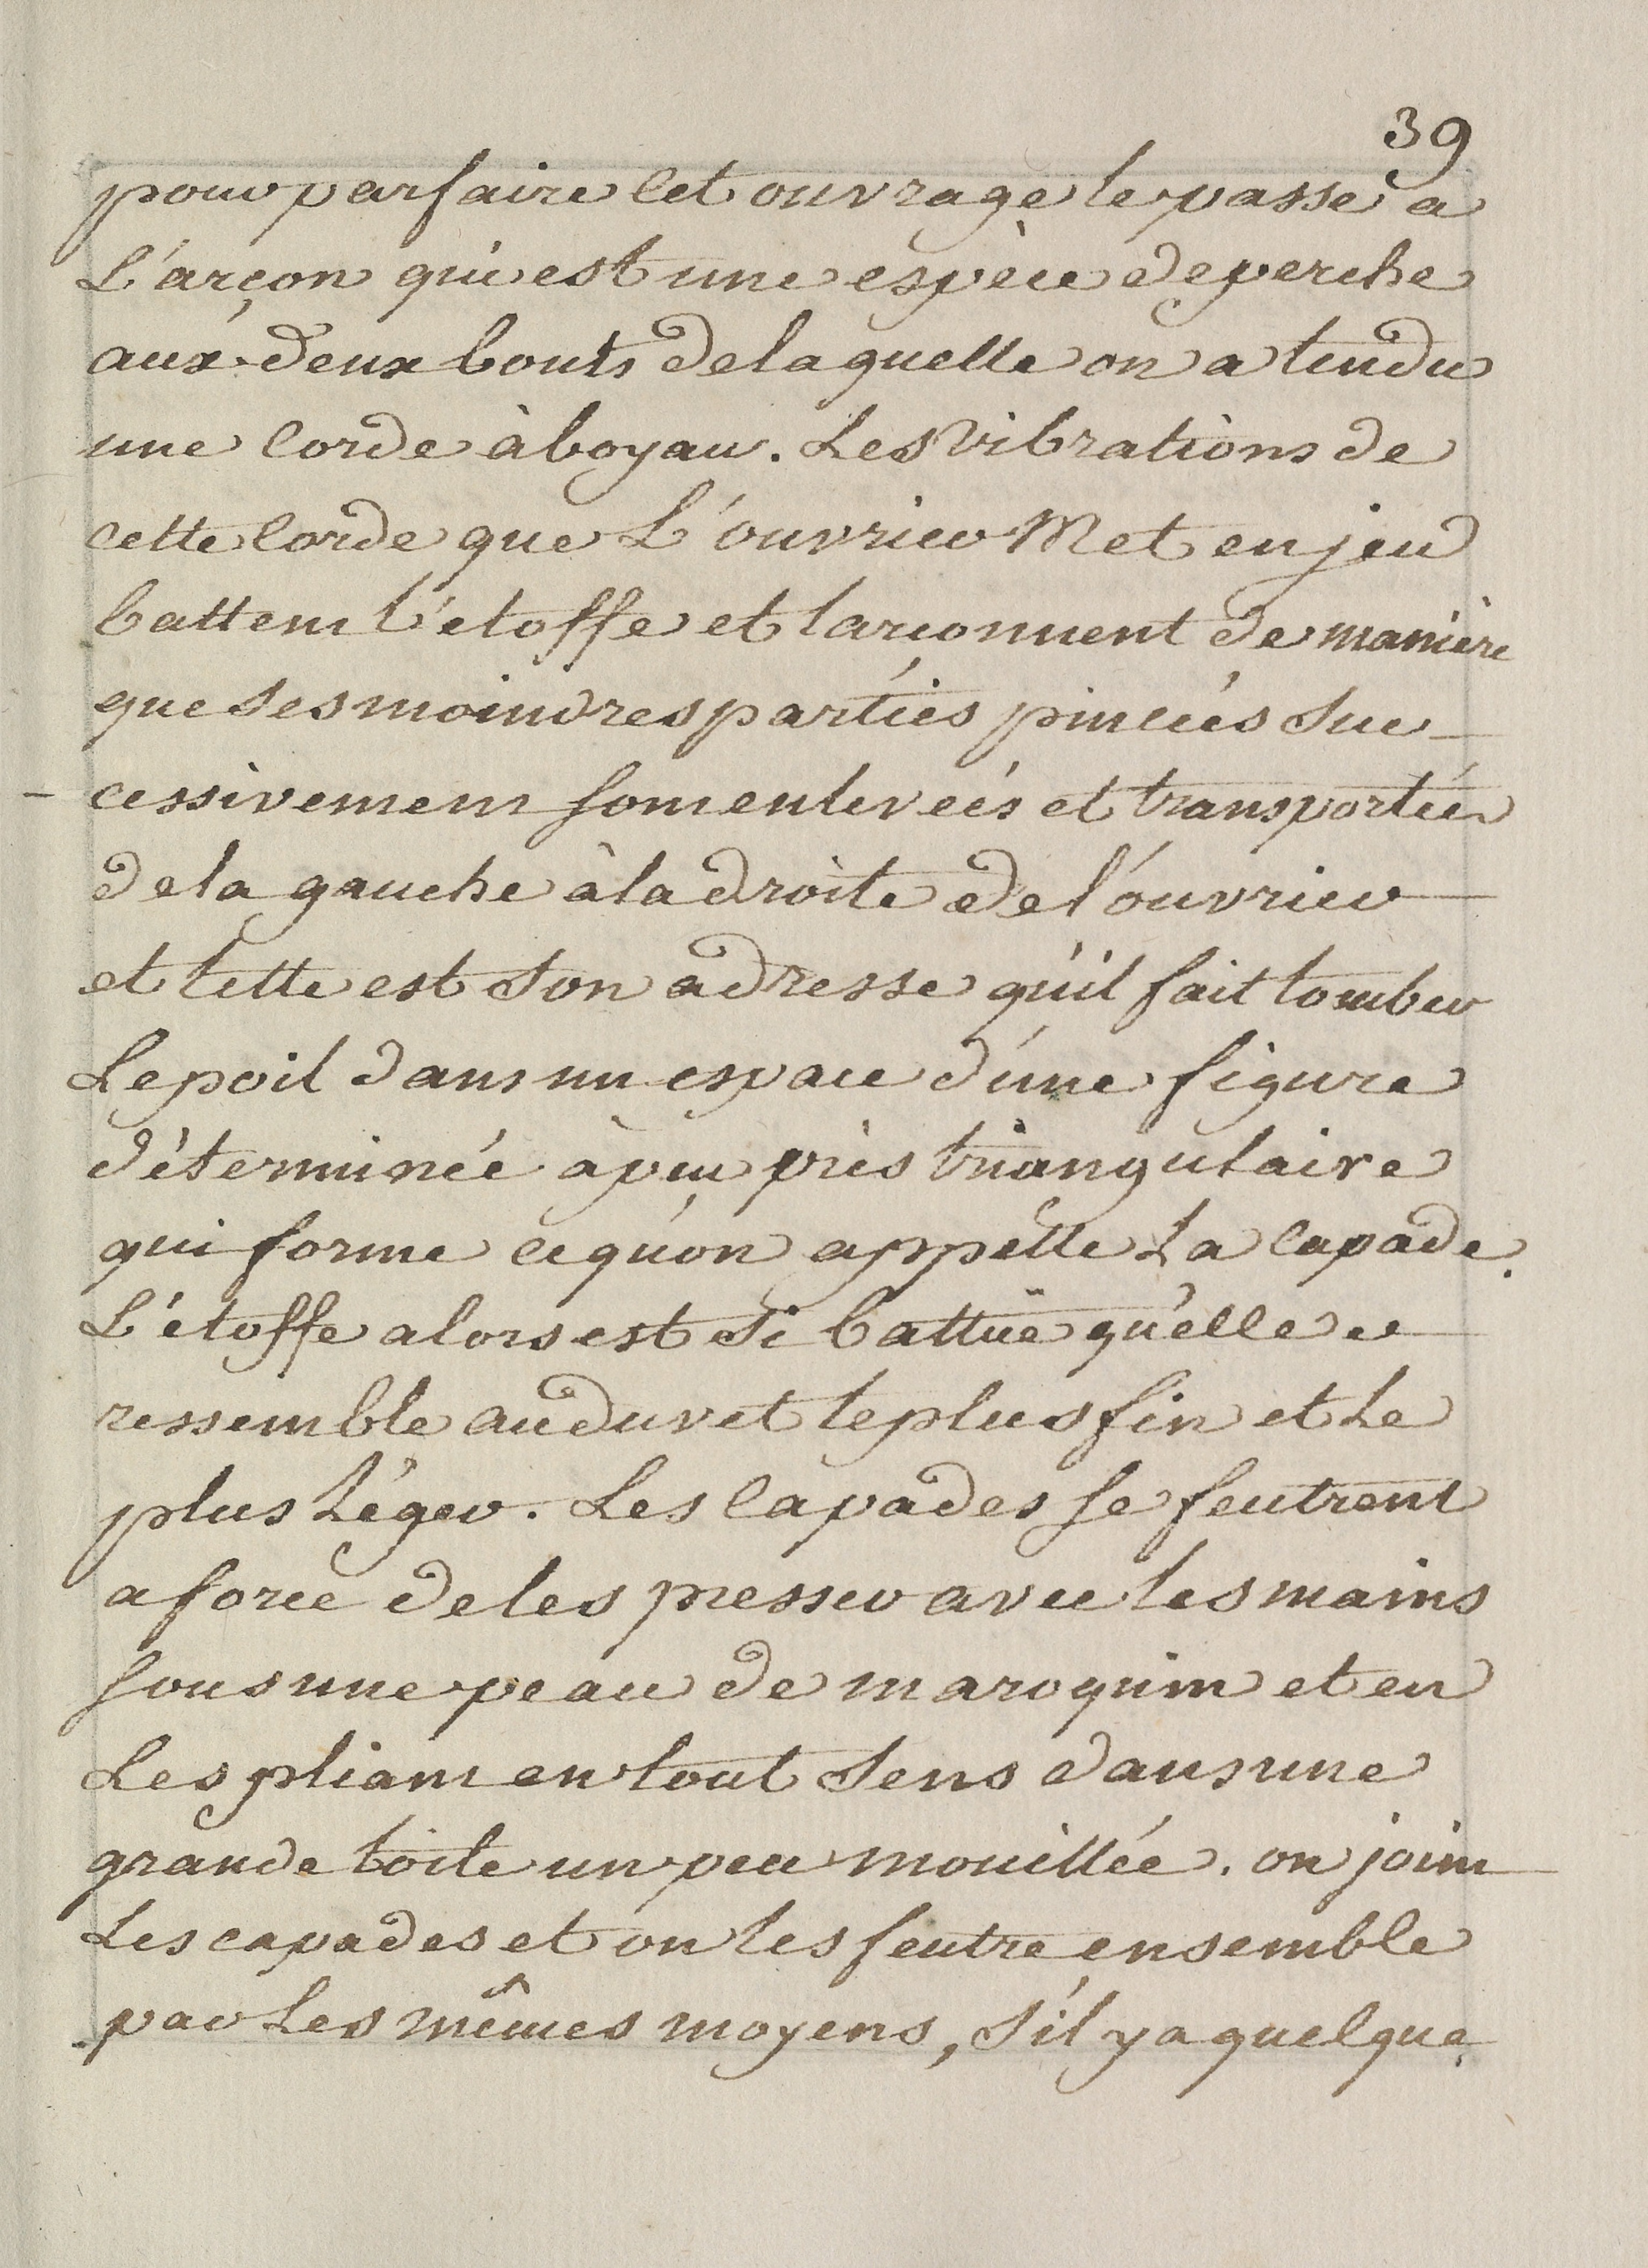 39
pour parfaire cet ouvrage le passe a
L'arçon qui est une espèce de perche
aux deux bouts de laquelle on a tendu
une corde à boyau. Les vibrations de
cette corde que L'ouvrier Met en jeu
battent l'étoffe et l'arçonnent de manière
que ses moindres parties pincées suc-
cessivement sont enlevées et transportées
de la gauche à la droite de l'ouvrier
et telle est son adresse qu'il fait tomber
Le poil dans un espace d'une figure
déterminée à peu près triangulaire
qui forme ce qu'on appelle La capade.
L'étoffe alors est si battuë qu'elle
ressemble au duvet le plus fin et Le
plus Léger. Les capades se feutrent
a force de les presser avec les mains
sous une peau de maroquin et en
Les pliant en tout sens dans une
grande toile un peu mouillée. on joint
Les capades et on les feutre ensemble
par Les mêmes moyens, s'il y a quelque